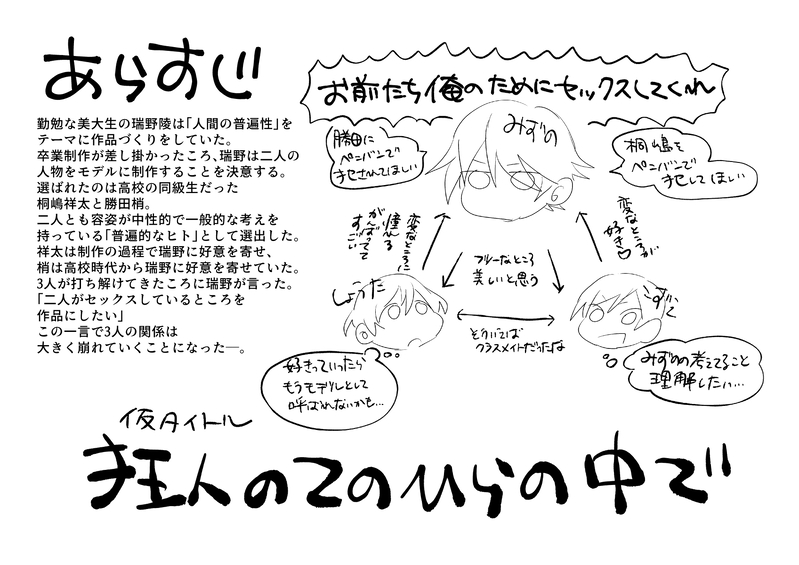 あらすじ
勤勉な美大生の瑞野陵は「人間の普遍性」を
テーマに作品づくりをしていた。
卒業制作が差し掛かったころ、瑞野は二人の
人物をモデルに制作することを決意する。
選ばれたのは高校の同級生だった
桐嶋祥太と勝田梢。
二人とも容姿が中性的で一般的な考えを
持っている「普遍的なヒト」として選出した。
祥太は制作の過程で瑞野に好意を寄せ、
梢は高校時代から瑞野に好意を寄せていた。
3人が打ち解けてきたころに瑞野が言った。
「二人がセックスしているところを
作品にしたい」
この一言で3人の関係は
大きく崩れていくことになった─。
お前たち俺のためにセックスしてく〜れ
みずの
勝田に
ペニバンで
犯されてほしい
桐嶋を
ペニバンで
犯してほしい
変なところに
憧れる
がんばってて
すごい
フルーなところ
美しいと思う
変なところが
好き♡
しょうた
こずえ
そういえば
クラスメイトだったな
好きっていったら
もうモデルとして
呼ばれないかも…
みずのの考えてること
理解したい…
仮タイトル
狂人のてのひらの中で